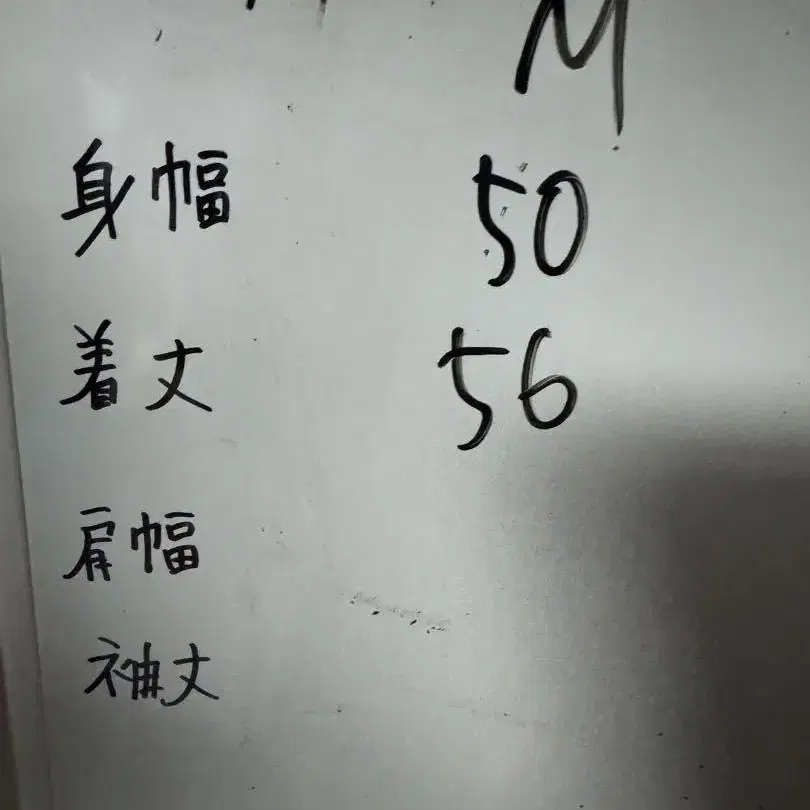 M
身幅 50
着丈 56
肩幅
袖丈